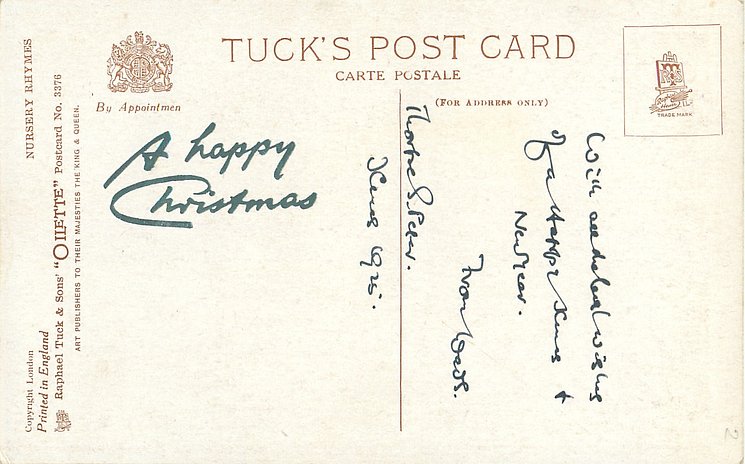 TUCK'S POST CARD
CARTE POSTALE
By Appointmen
(FOR ADDRESS ONLY)
TRADE MARK
A happy
Christmas
With wishes
of a Happy Xmas +
New Year.
Xmas 1915.
NURSERY RHYMES
Raphael Tuck & Sons' "OILETTE" Postcard No. 3376
ART PUBLISHERS TO THEIR MAJESTIES THE KING & QUEEN.
Copyright London
Printed in England